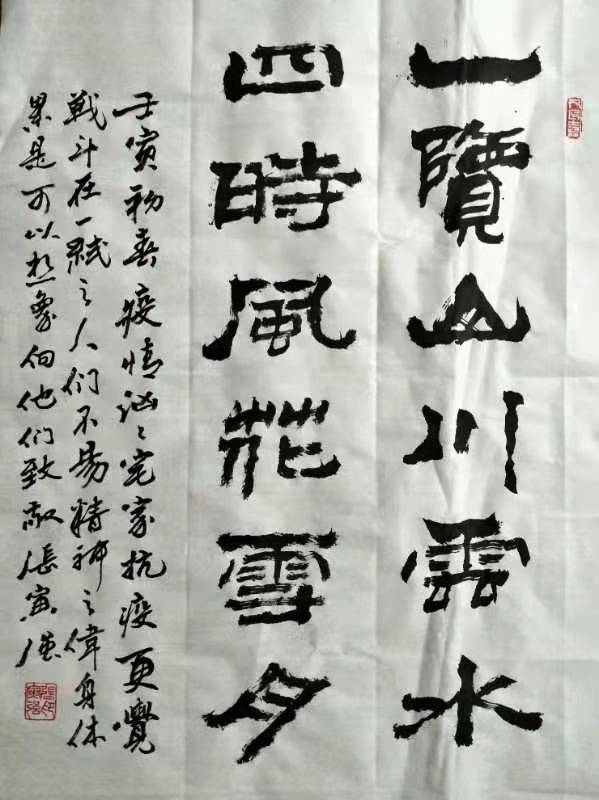 一覽山川雲水
四時風花雪月
壬寅初春疫情汹々宅家抗疫更覺
戰斗在一綫之人们不易精神之偉身体
果是可以想象向他们致敬張寅